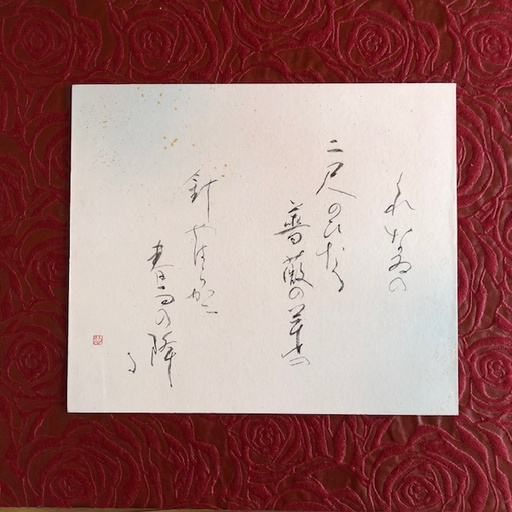 くれなゐの
二尺のひたる
薔薇の芽の
針やはらかに
春雨の降
る